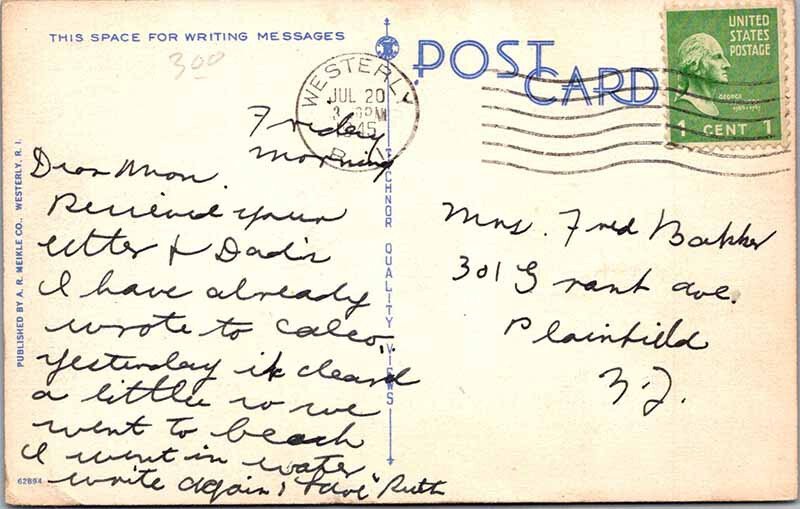 THIS SPACE FOR WRITING MESSAGES
300
POST CARD
UNITED
STATES
POSTAGE
GEORGE
1 CENT 1
WESTERLY
JUL 20
PM
1945
R.
Friday
morning
Dear Mom
Received your
letter & Dad's
I have already
wrote to
Yesterday it cleared
a little so we
went to beach
I went in water
write again, Love" Ruth
Mrs. Fred Bakker
301 Grant ave.
Plainfield
N.J.
PUBLISHED BY A. R. MEIKLE CO., WESTERLY, R. I.
TICHNOR QUALITY VIEWS
62894